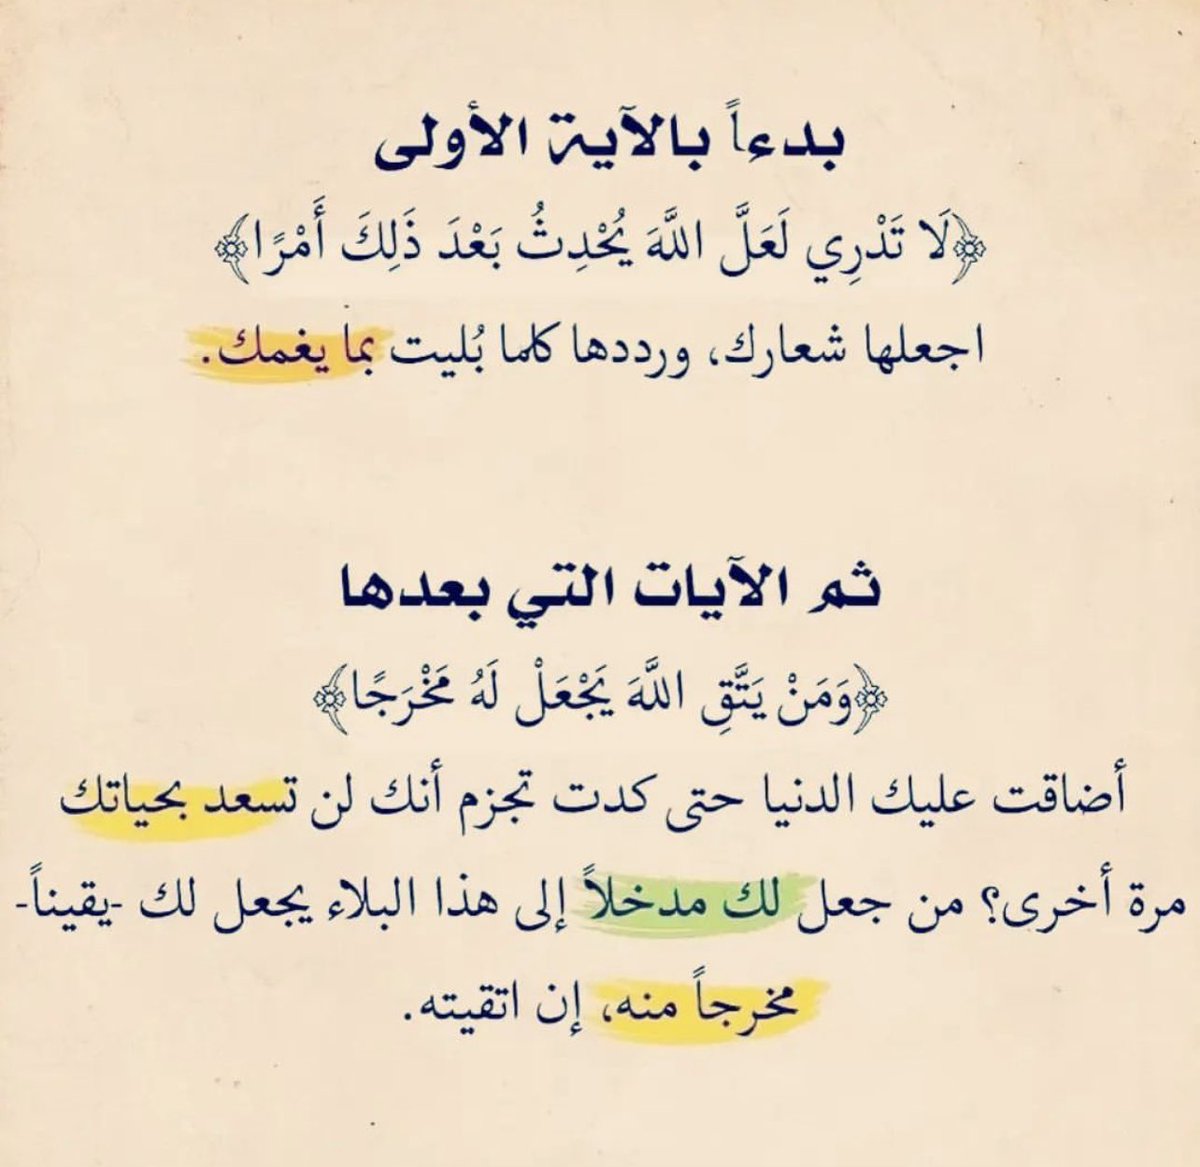 بدءاً بالآية الأولى
﴿لَا تَدْرِي لَعَلَّ اللَّهَ يُحْدِثُ بَعْدَ ذَلِكَ أَمْرًا﴾
اجعلها شعارك، ورددها كلما بُليت بما يغمك.
ثم الآيات التي بعدها
﴿وَمَنْ يَتَّقِ اللَّهَ يَجْعَلْ لَهُ مَخْرَجًا﴾
أضاقت عليك الدنيا حتى كدت تجزم أنك لن تسعد بحياتك
مرة أخرى؟ من جعل لك مدخلاً إلى هذا البلاء يجعل لك -يقيناً-
مخرجاً منه، إن اتقيته.